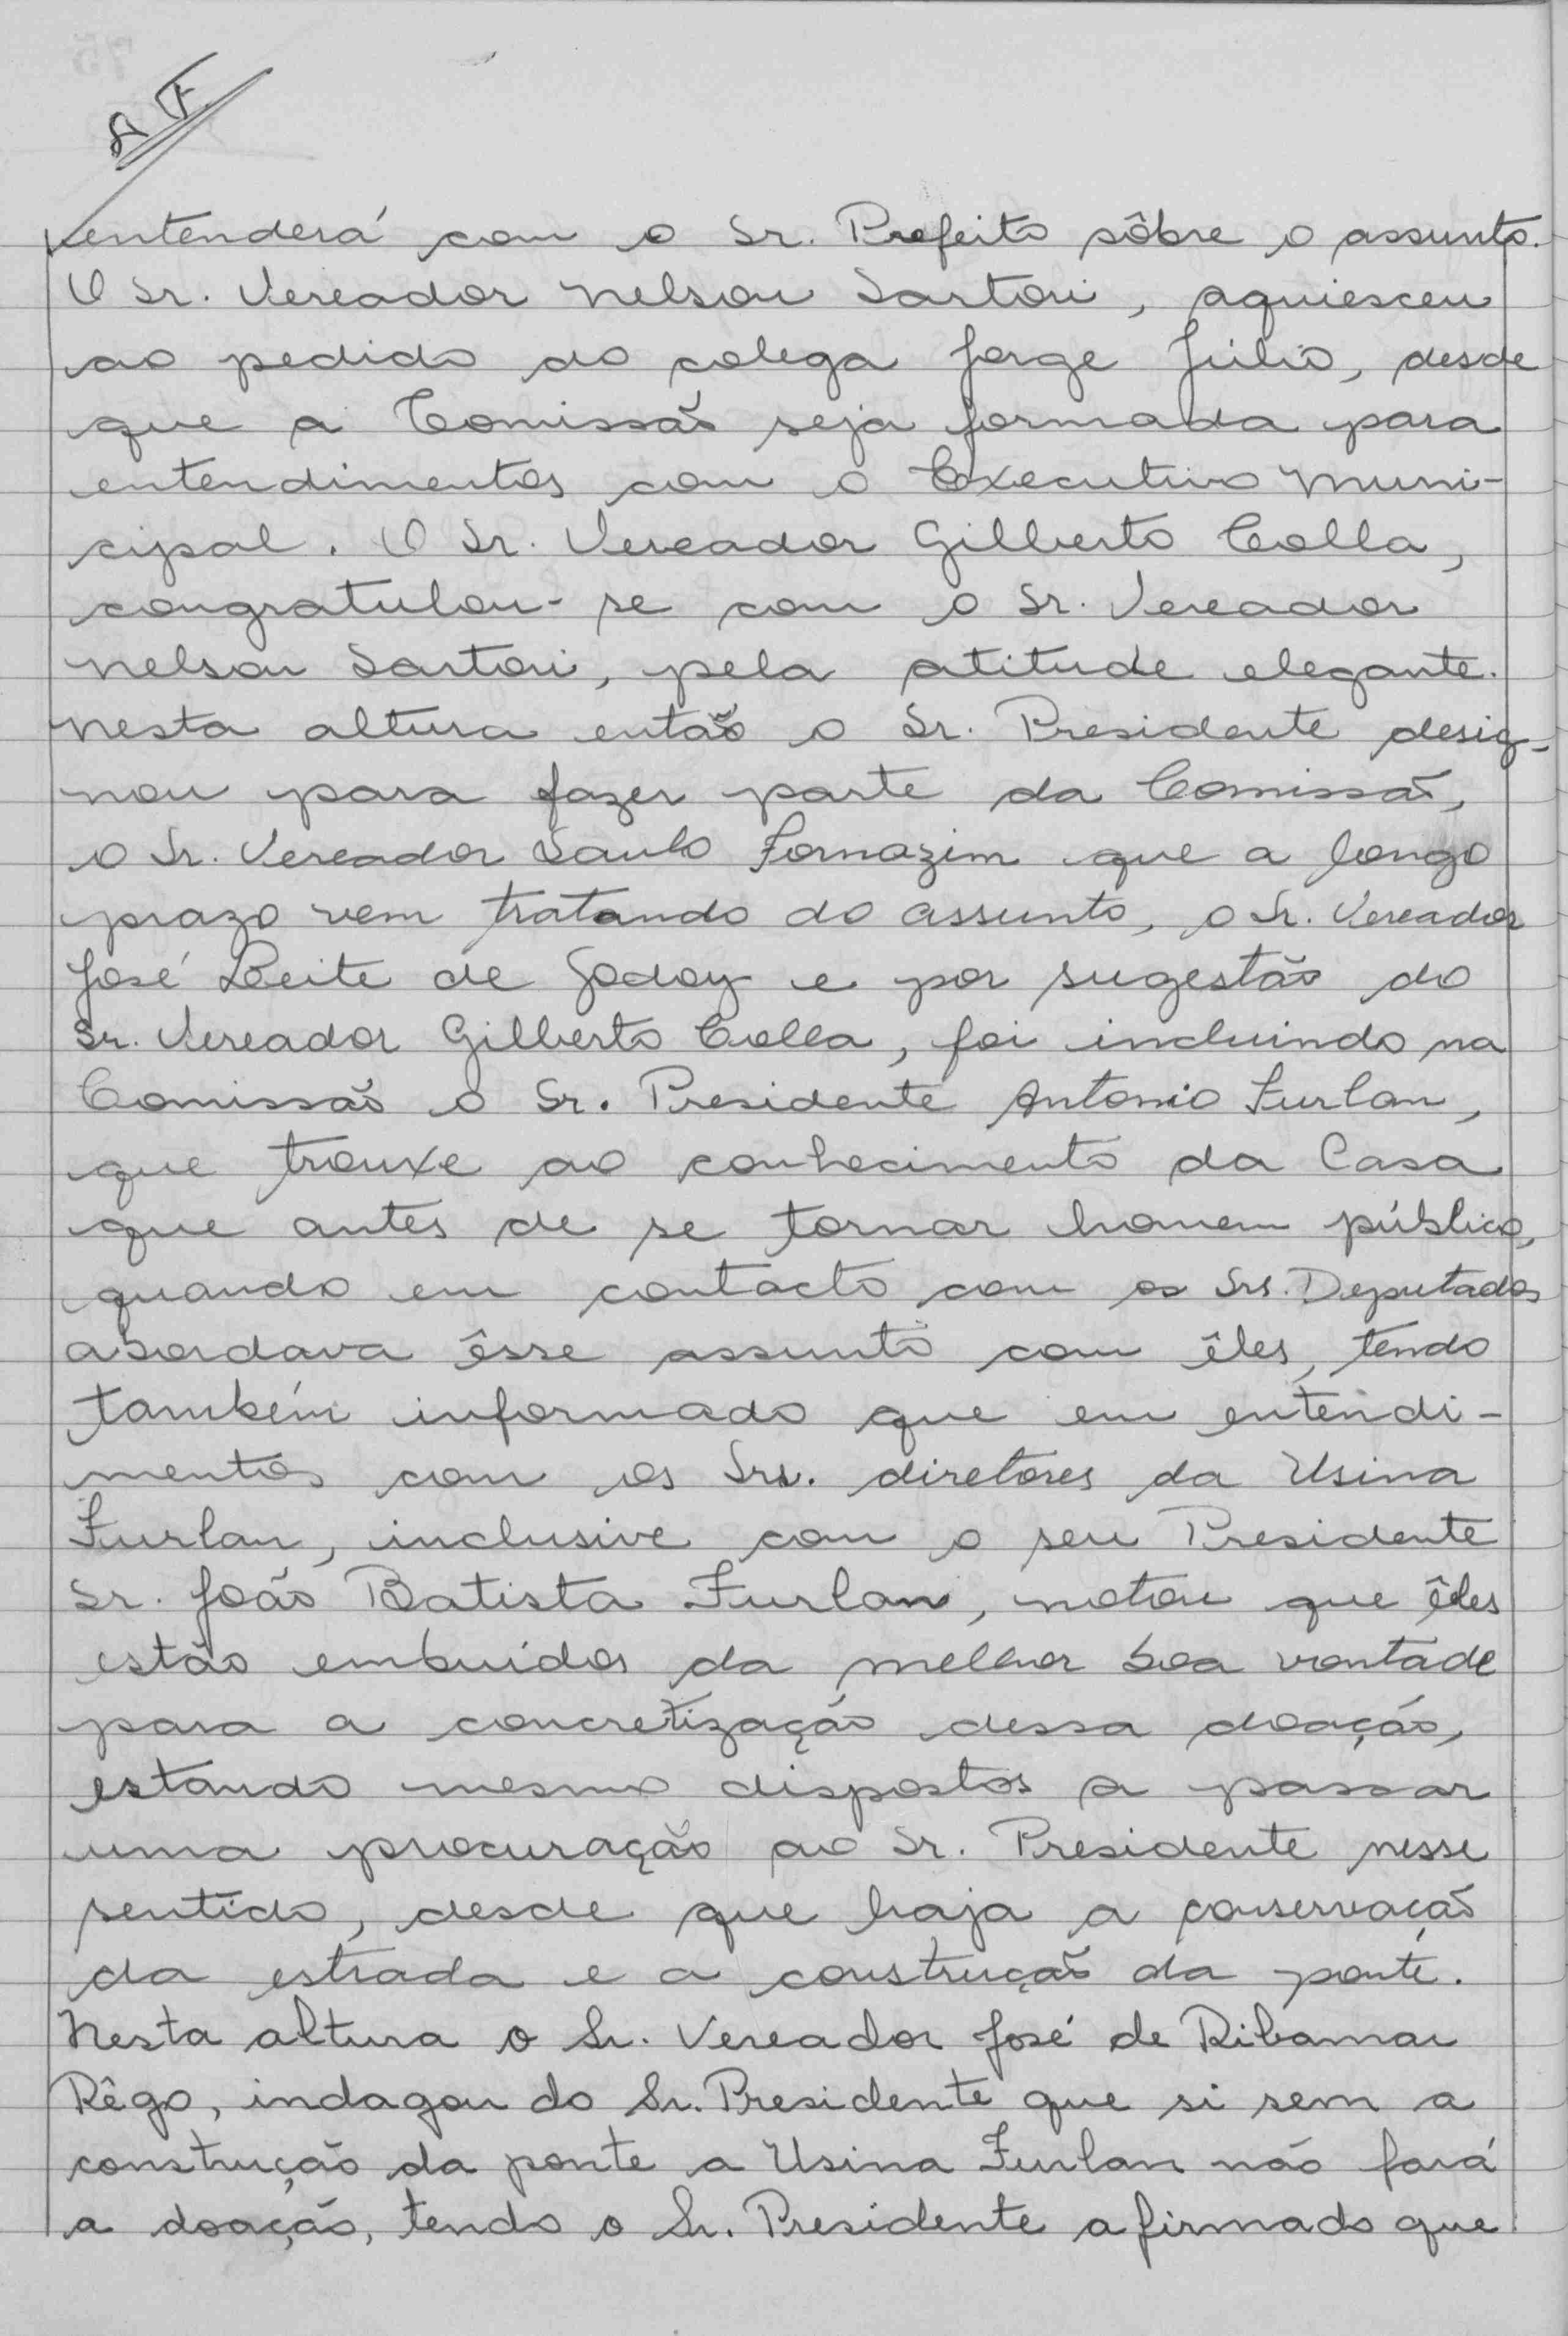 AF.
entenderá com o Sr. Prefeito sôbre o assunto.
O Sr. Vereador Nelson Sartori, aquiesceu
ao pedido do colega Jorge Júlio, desde
que a Comissão seja formada para
entendimentos com o Executivo Muni-
cipal. O Sr. Vereador Gilberto Colla,
congratulou-se com o Sr. Vereador
Nelson Sartori, pela atitude elegante.
Nesta altura então o Sr. Presidente desig-
nou para fazer parte da Comissão,
o Sr. Vereador Saulo Fornazim que a longo
prazo vem tratando do assunto, o Sr. Vereador
José Leite de Godoy e por sugestão do
Sr. Vereador Gilberto Colla, foi incluindo na
Comissão o Sr. Presidente Antonio Furlan,
que trouxe ao conhecimento da Casa
que antes de se tornar homem público,
quando em contacto com os Srs. Deputados
abordava êsse assunto com êles, tendo
também informado que em entendi-
mentos com os Srs. diretores da Usina
Furlan, inclusive com o seu Presidente
Sr. João Batista Furlan, notou que êles
estão embuidos da melhor boa vontade
para a concretização dessa doação,
estando mesmo dispostos a passar
uma procuração ao Sr. Presidente nesse
sentido, desde que haja a conservação
da estrada e a construção da ponte.
Nesta altura o Sr. Vereador José de Ribamar
Rêgo, indagou do Sr. Presidente que si sem a
construção da ponte a Usina Furlan não fará
a doação, tendo o Sr. Presidente afirmado que